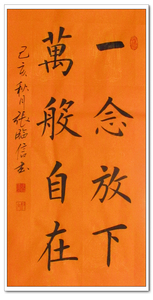 一念放下
萬般自在
己亥秋月張臨信書